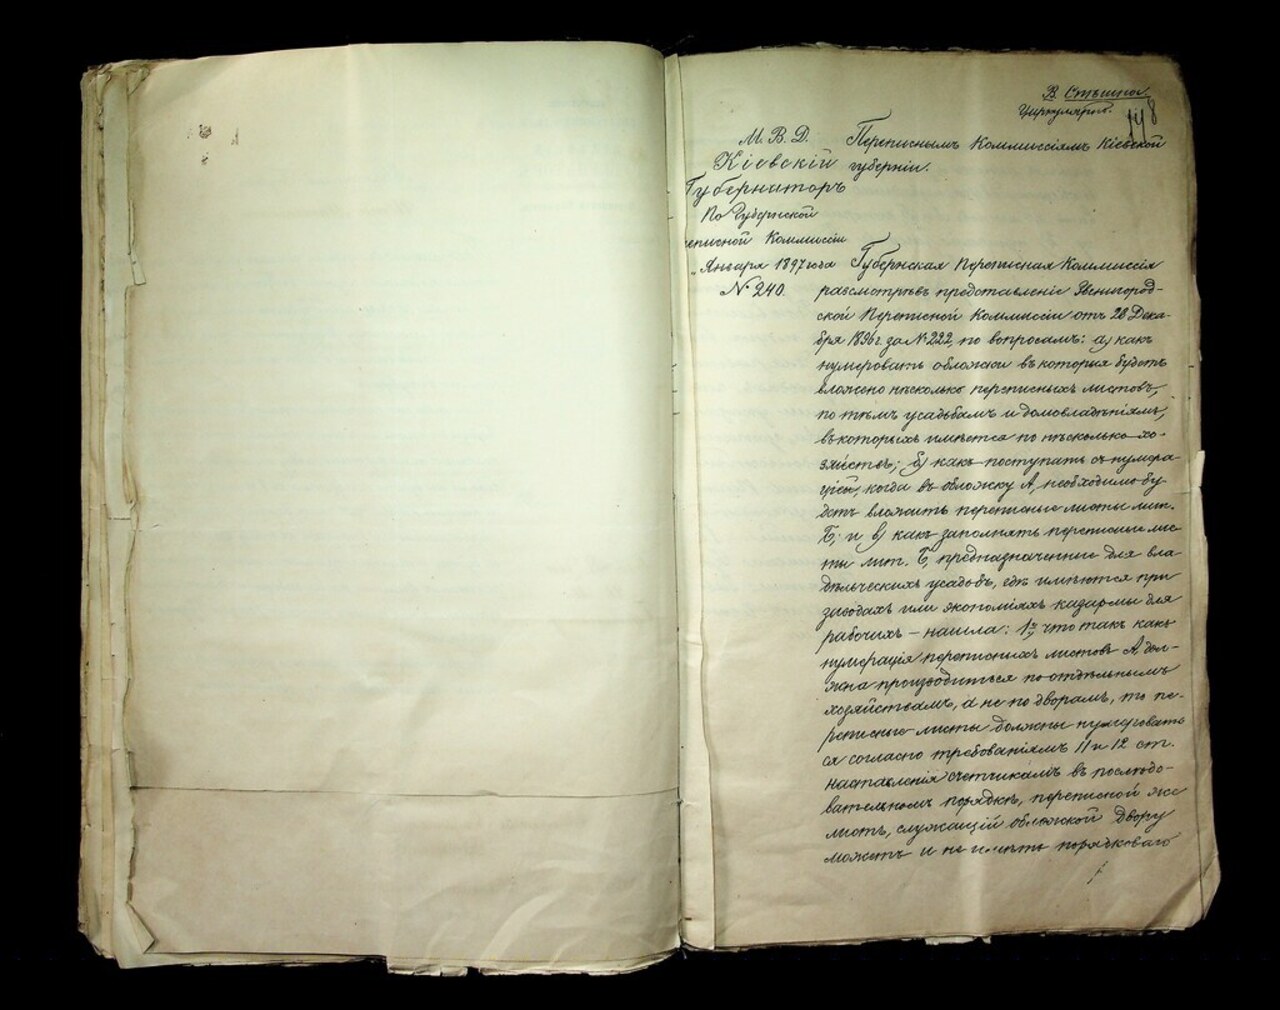 В. Спѣшно.
Циркулярно.
148
М. В. Д.
Кіевскій
Губернаторъ
По Губернской
еписной Коммиссіи
„ Января 1897 года
№ 240.
Переписнымъ Коммиссіямъ Кіевской
губерніи.
Губернская Переписная Коммиссія
разсмотрѣвъ представленіе Звенигород-
ской Переписной Коммиссіи отъ 28 Дека-
бря 1896 г. за № 222, по вопросамъ: а) какъ
нумеровать обложки въ которыя будетъ
вложено нѣсколько переписныхъ листовъ,
по тѣмъ усадьбамъ и домовладѣніямъ,
въ которыхъ имѣется по нѣсколько хо-
зяйствъ; б) какъ поступать съ нумера-
ціей, когда въ обложку А, необходимо бу-
детъ вложить переписные листы лит.
Б; и в) какъ заполнять переписные лис
ты лит. Б, предназначенные для вла-
дѣльческихъ усадьбъ, гдѣ имѣются при
заводахъ или экономіяхъ казармы для
рабочихъ – нашла: 1) что такъ какъ
нумерація переписныхъ листовъ А, дол-
жна производиться по отдѣльнымъ
хозяйствамъ, а не по дворамъ, то пе-
реписные листы должны нумеровать
ся согласно требованіямъ 11 и 12 ст.
наставленія счетчикамъ въ послѣдо-
вательномъ порядкѣ, переписной же
листъ, служащій обложкой двору
можетъ и не имѣть порядковаго